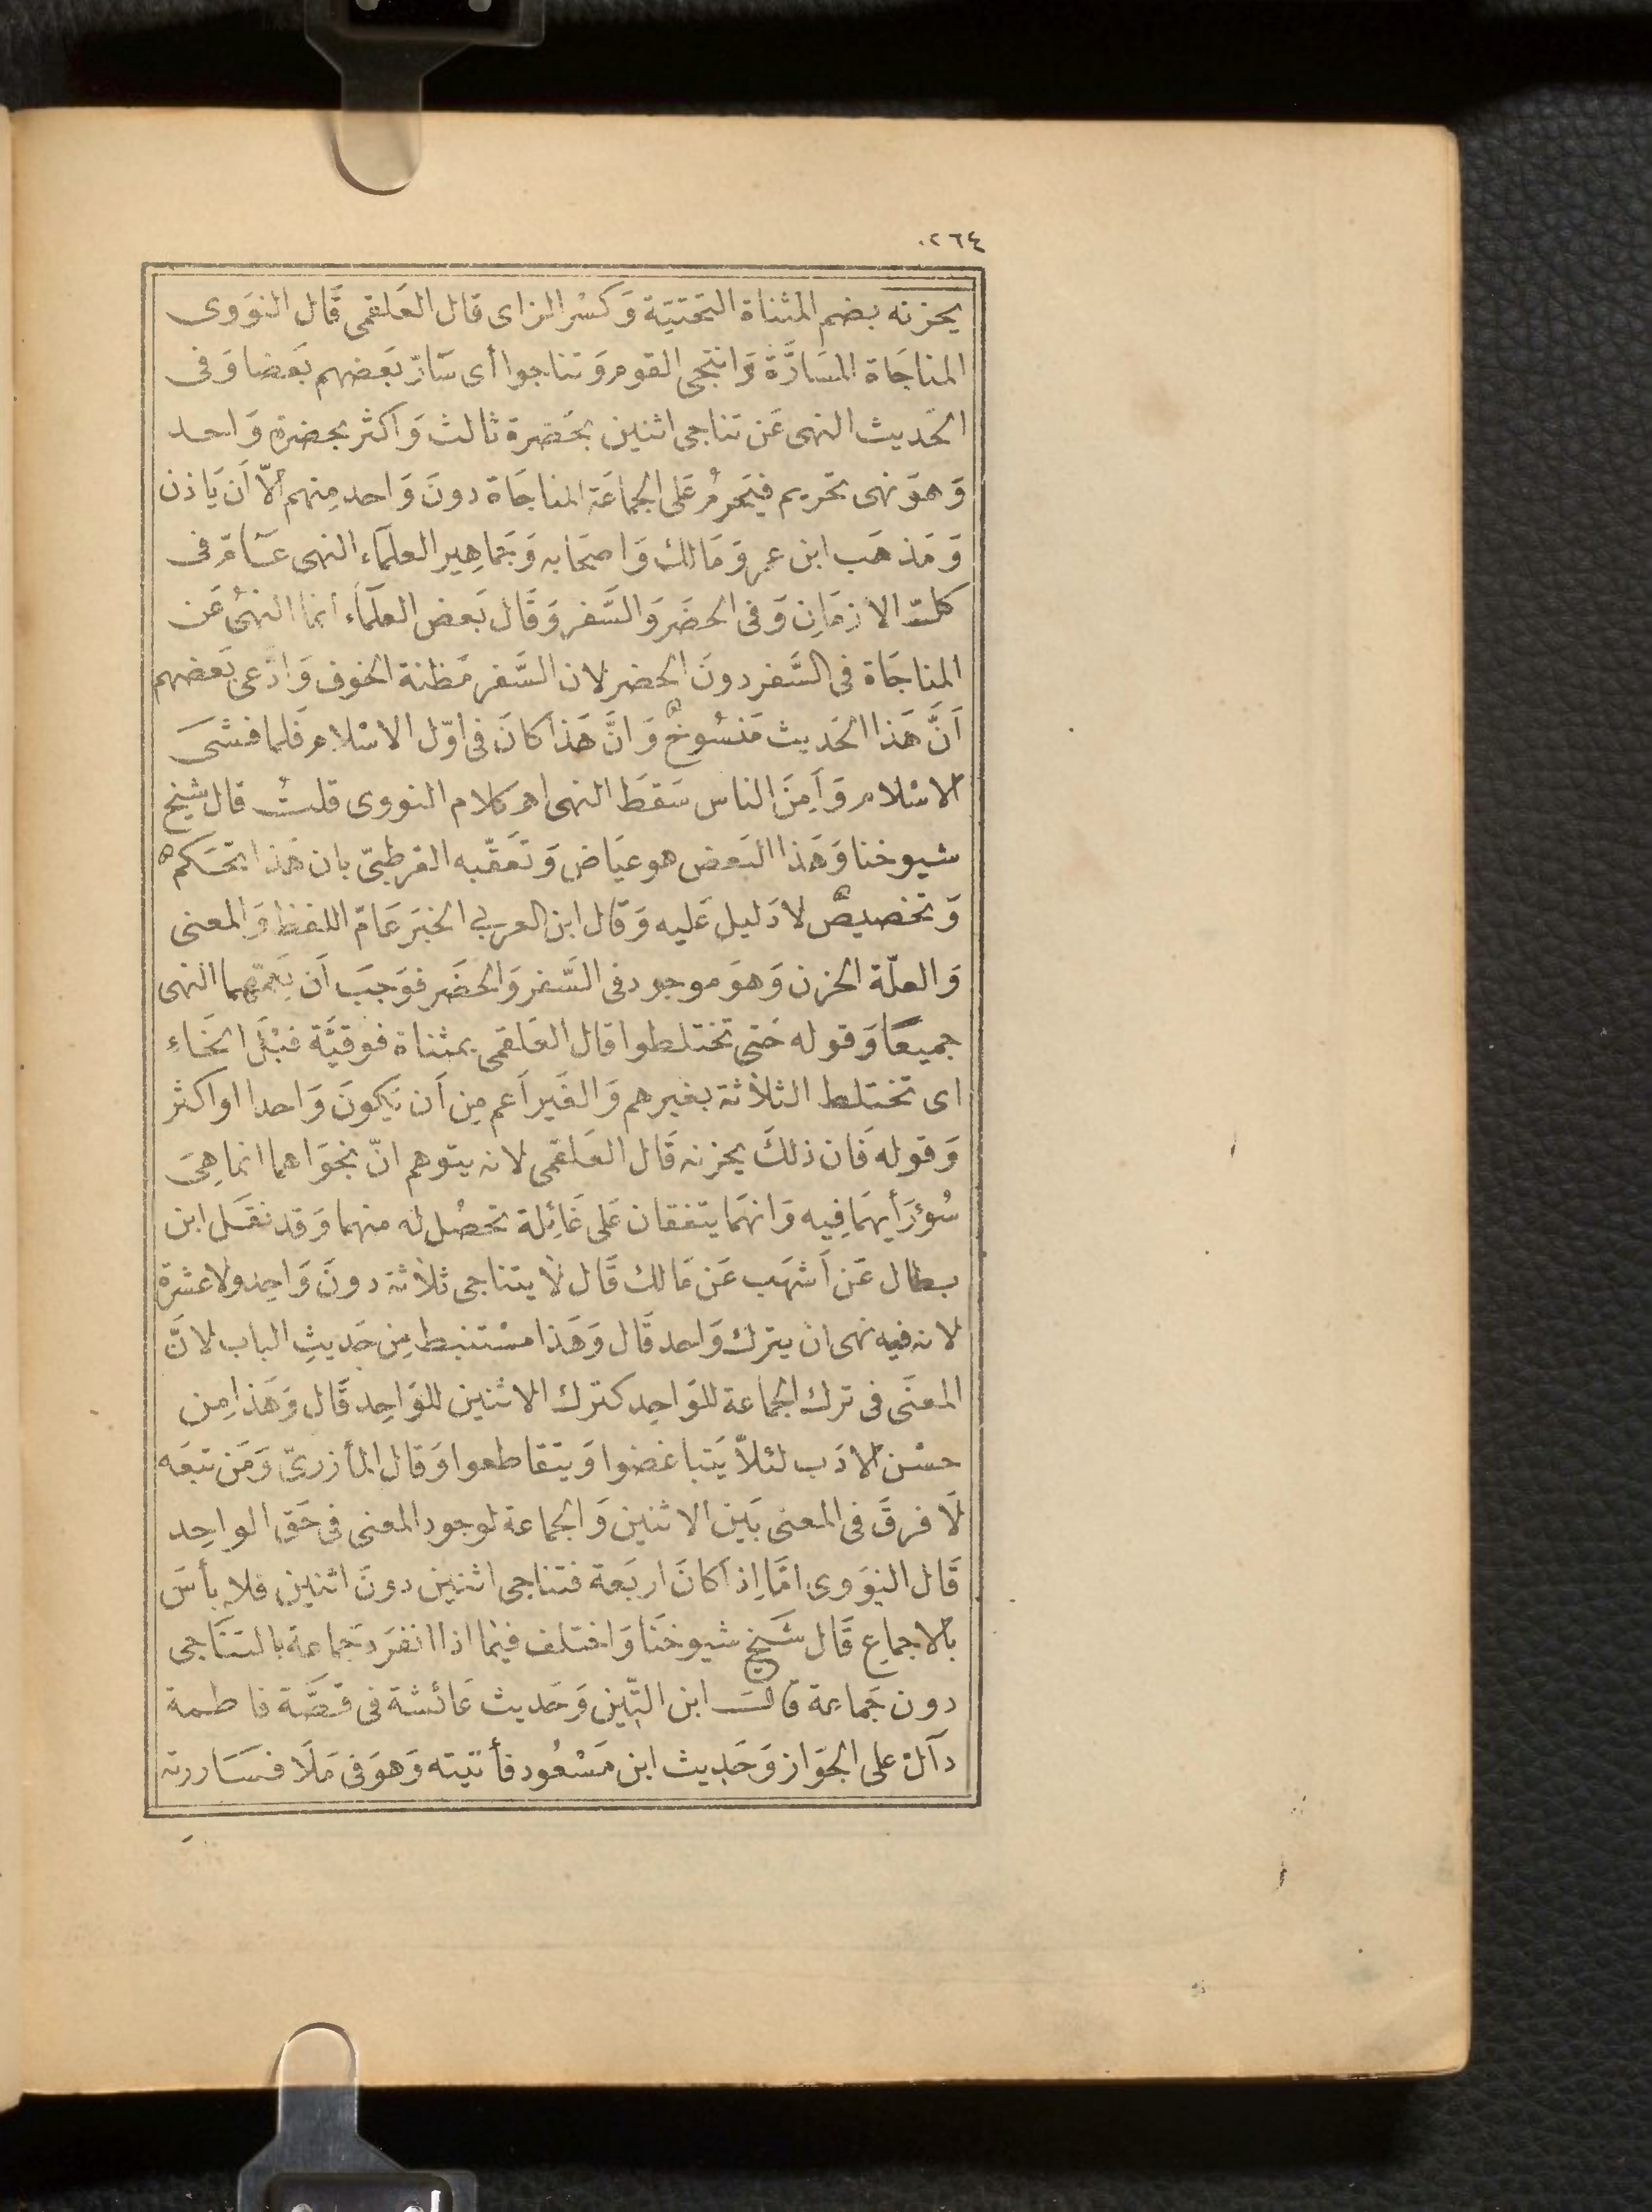 ٢٦٤
يحزنه بضم المثناة التحتيّة وَكسْر الزاى قال العَلقمى قَال النوَوى
المناجَاة المسَارَّة وَانتجى القوم وَتناجوا أى سَارّ بَعضهم بَعضا وَفى
الحَديث النهى عَن تناجى اثنين بحَضرة ثالث وَاكثر بحضرة وَاحد
وَهوَ نهى تحريم فيَحرمُ عَلى الجماعَة المناجَاة دونَ وَاحد مِنهم الاّ اَن يَاذن
وَمَذهَب ابن عمر وَمَالك وَاصحَابه وَجَماهِير العلمَاء النهى عَامّ فى
كلّ الازمَانِ وَفى الحضَر وَالسَّفر وَقَال بَعض العلمَاء انما النهىُ عَن
المناجَاة فى السَّفر دونَ الحضر لان السَّفر مَظنة الخوف وَادّعى بَعضهم
اَنَّ هَذا الحَديث مَنسُوخٌ وَانَّ هَذا كانَ فى اوّل الاسْلام فَلما فشَى
الاسْلام وَاَمِنَ الناس سَقَط النهى اه كلام النووى قلتُ قال شيخ
شيوخنا وَهَذا البَعض هو عيَاض وَتعَقّبه القرطبىّ بان هَذا تحَكمٌ
وَتخصيصٌ لا دَليل عَليه وَقال ابن العربي الخبَر عَامّ اللفظ وَالمعنى
وَالعلّة الحزن وَهوَ موجود فى السَّفر وَالحضَر فوَجَبَ اَن يَعمّهما النهى
جميعًا وَقوله حَتى تختلطوا قال العَلقمى بمثناة فوقيَّة قبْل الخَاءِ
اى تختلط الثلاثة بغيرهم وَالغَير اَعم مِن اَن يَكونَ وَاحدا او اكثر
وَقوله فَان ذلكَ يحزنه قَال العَلقمى لانه يتوهم انّ نجوَاهما انما هىَ
سُوْءَ رَأيهمَا فِيه وَانهَما يتفقان عَلى غَائِلة تحصُل له منهما وَقد نقَل ابن
بطال عَن اَشهَب عَن مَالك قَال لا يتناجى ثلاثة دونَ وَاحِد ولا عشرة
لانه فيه نهى ان يترك وَاحد قَال وَهَذا مسْتنبط مِن حَديثِ الباب لانَّ
المعنَى فى ترك الجماعة للوَاحِد كترك الاثنين للوَاحِد قَال وَهَذا مِن
حسْن الادَب لئلاّ يَتباغضوا وَيتقاطعوا وَقال المأزرىّ وَمَن تبَعَه
لَا فرقَ فى المعنى بَين الاثنين وَالجماعة لوجود المعنى فى حَق الواحِد
قَال النوَوى امَّا اِذا كانَ اربَعة فتناجى اثنين دونَ اثنين فلا بأسَ
بالاجماعِ قَال شَيخ شيوخنَا وَاختلف فيمَا اذا انفرَد جَماعة بالتنَاجى
دون جَماعة قالَ ابن التّين وَحَديث عَائشة فى قصَّة فاطمة
دَآلّ على الجوَاز وَحَدِيث ابن مَسْعُود فأتيته وَهوَ فى مَلَا فسَاررته